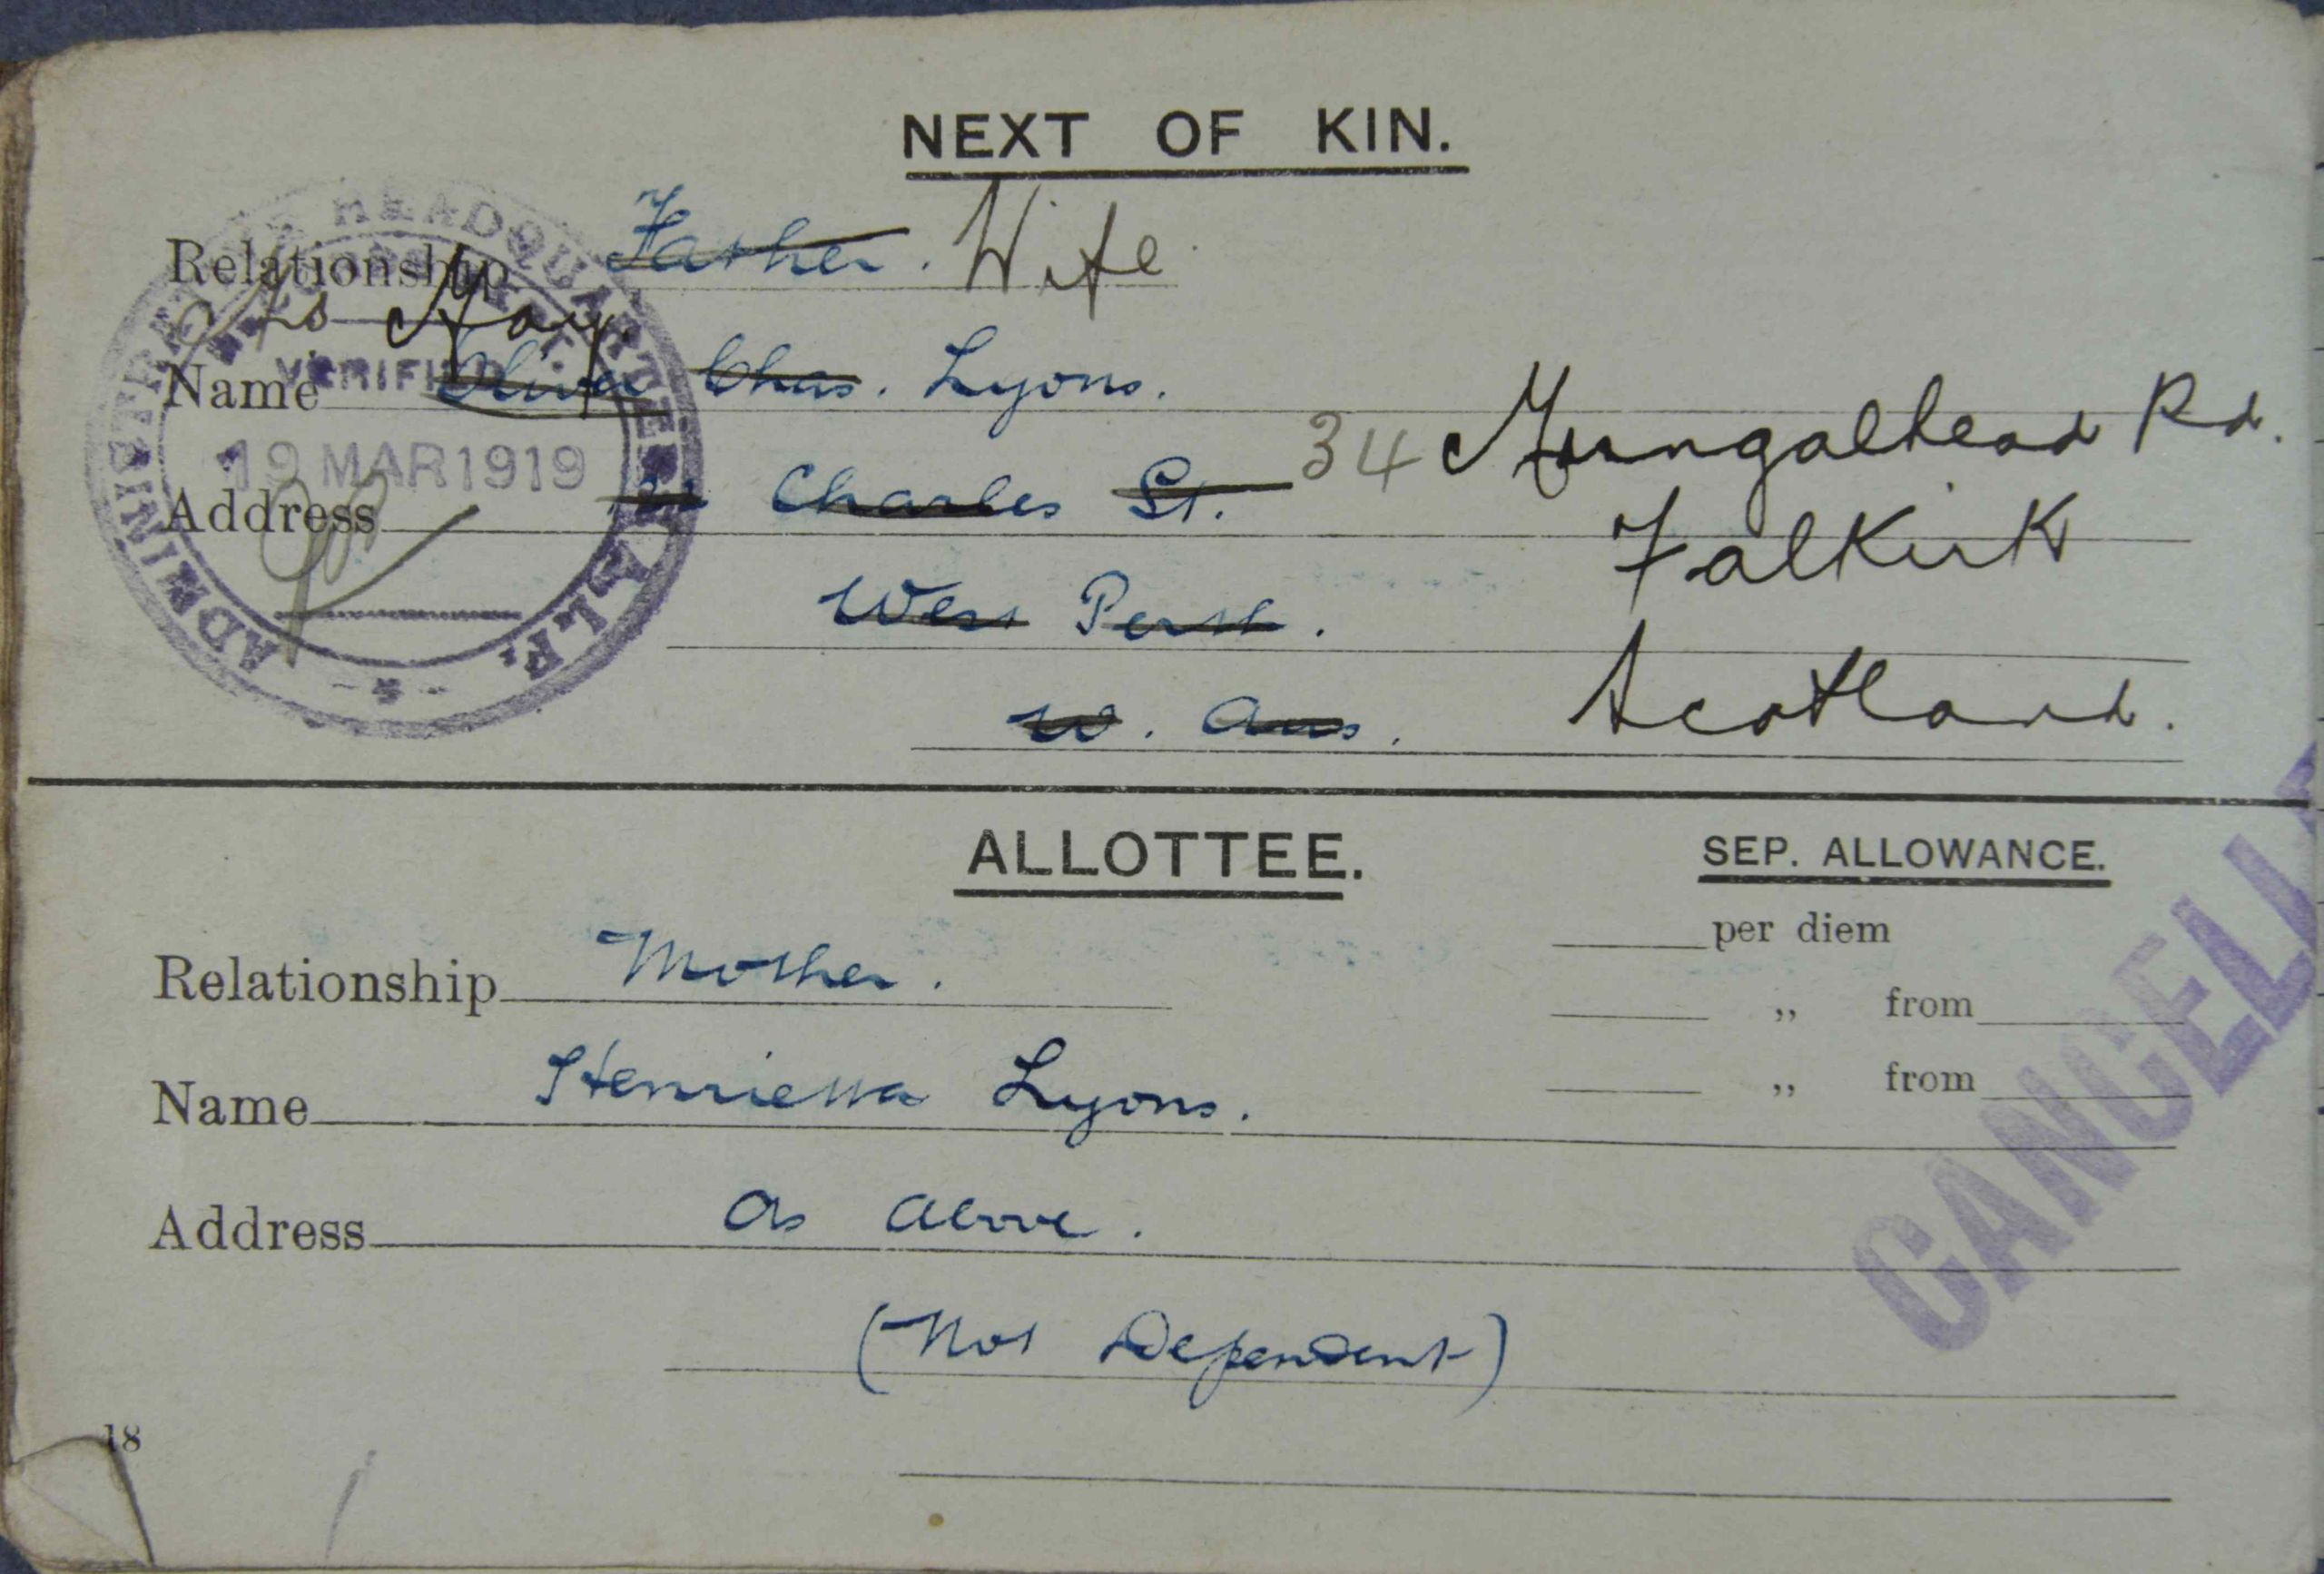 NEXT OF KIN.
Relationship Father. Wife
Mrs May.
Name Oliver Chas. Lyons.
Address Charles St. 34 Mungalhead Rd.
Falkirk
West Perth.
W. Aus. Scotland.
ADMINISTRATIVE HEADQUARTERS A.I.F.
VERIFIED
19 MAR 1919
ALLOTTEE.
SEP. ALLOWANCE.
per diem
Relationship Mother.
„ from
Name Henrietta Lyons.
„ from
Address as above.
(Not Dependent)
CANCELL
18